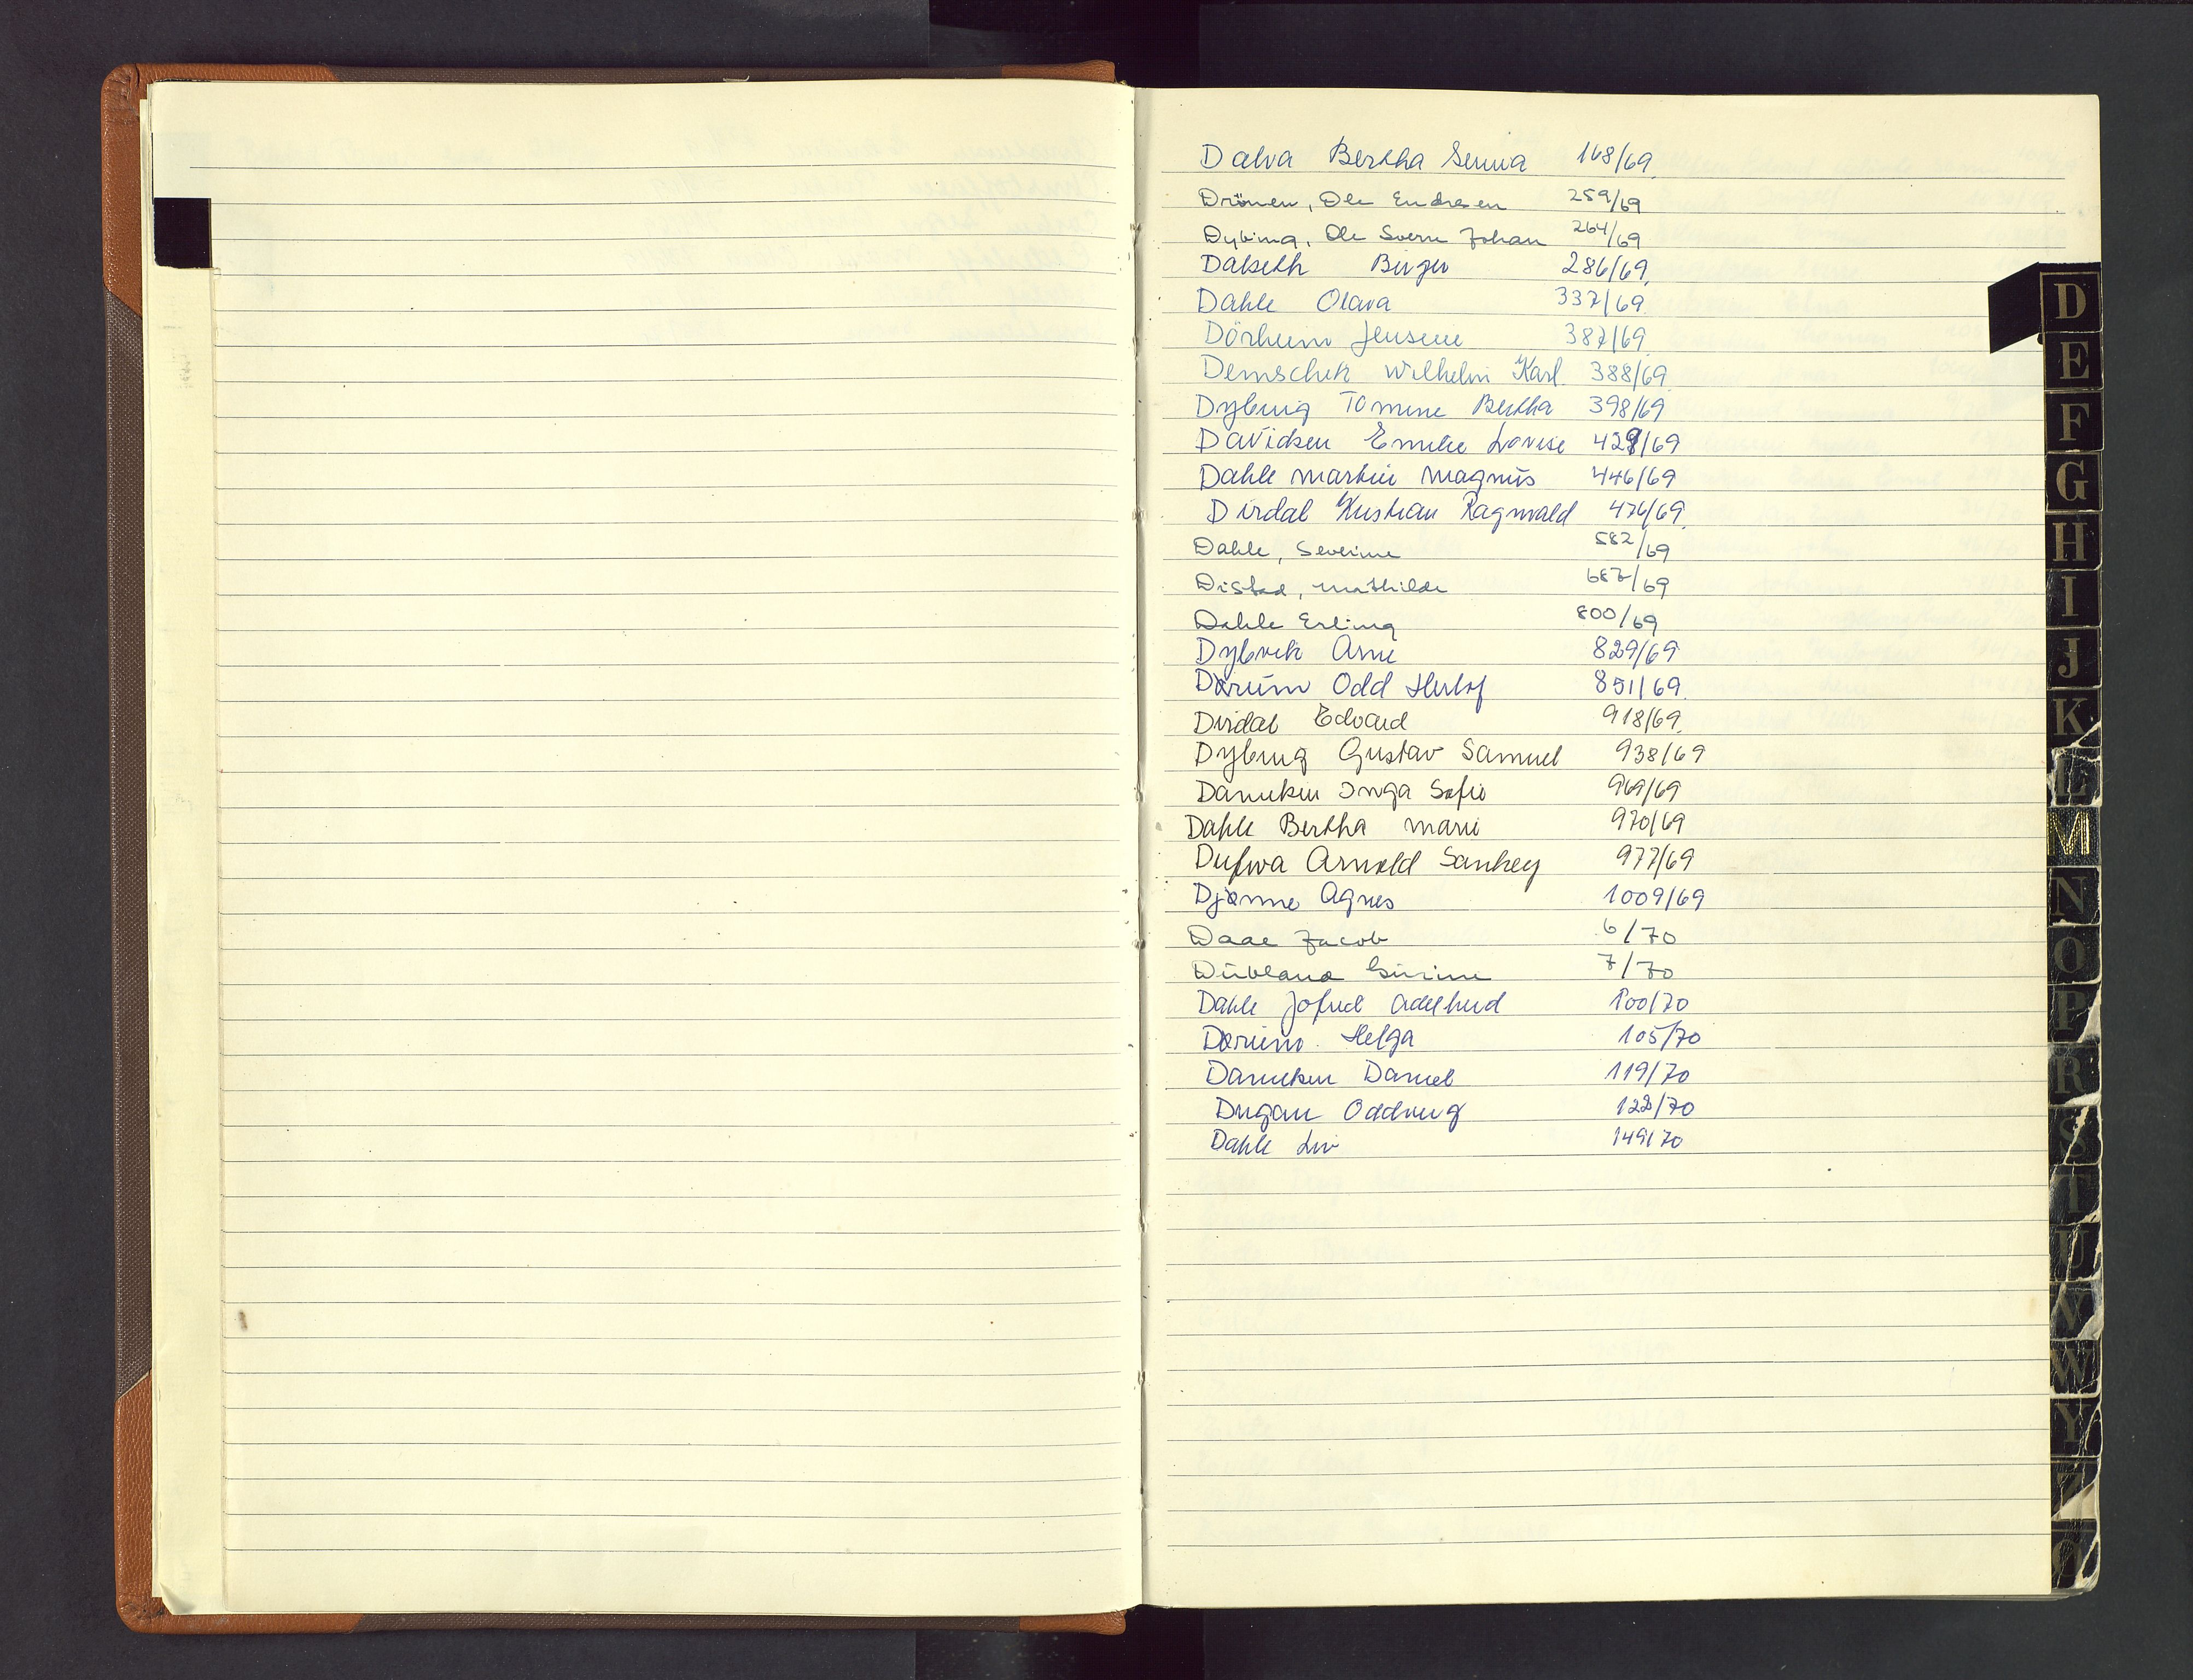 Dalva Bertha Serina 168/69.
Drönen, Ole Endresen 259/69
Dybing, Ole Sverre Johan 264/69
Dalseth Birger 286/69.
Dahle Olava 337/69
Dörheim Jensine 387/69.
Demschek Wilhelm Karl 388/69.
Dybing Tomine Bertha 398/69
Davidsen Emilie Lovise 429/69
Dahle Martin Magnus 446/69
Dirdal Kristian Ragnvald 476/69.
Dahle, Severine 582/69
Distad, Mathilde 687/69
Dahle Erling 800/69
Dybvik Arne 829/69
Dørum Odd Herlof 851/69.
Dirdal Edvard 918/69.
Dybing Gustav Samuel 938/69
Danielsen Inga Sofie 969/69
Dahle Bertha Marie 970/69
Dufwa Arnold Sankey 977/69
Djønne Agnes 1009/69
Daae Jacob 6/70
7/70
Dahle Jofrid Adelheid 100/70
Dørum Helga 105/70
Danielsen Daniel 119/70
Dugan Oddveig 122/70
Dahle Liv 149/70
D
E
F
G
H
I
J
K
L
M
N
O
P
R
S
T
U
V
W
Y
Z